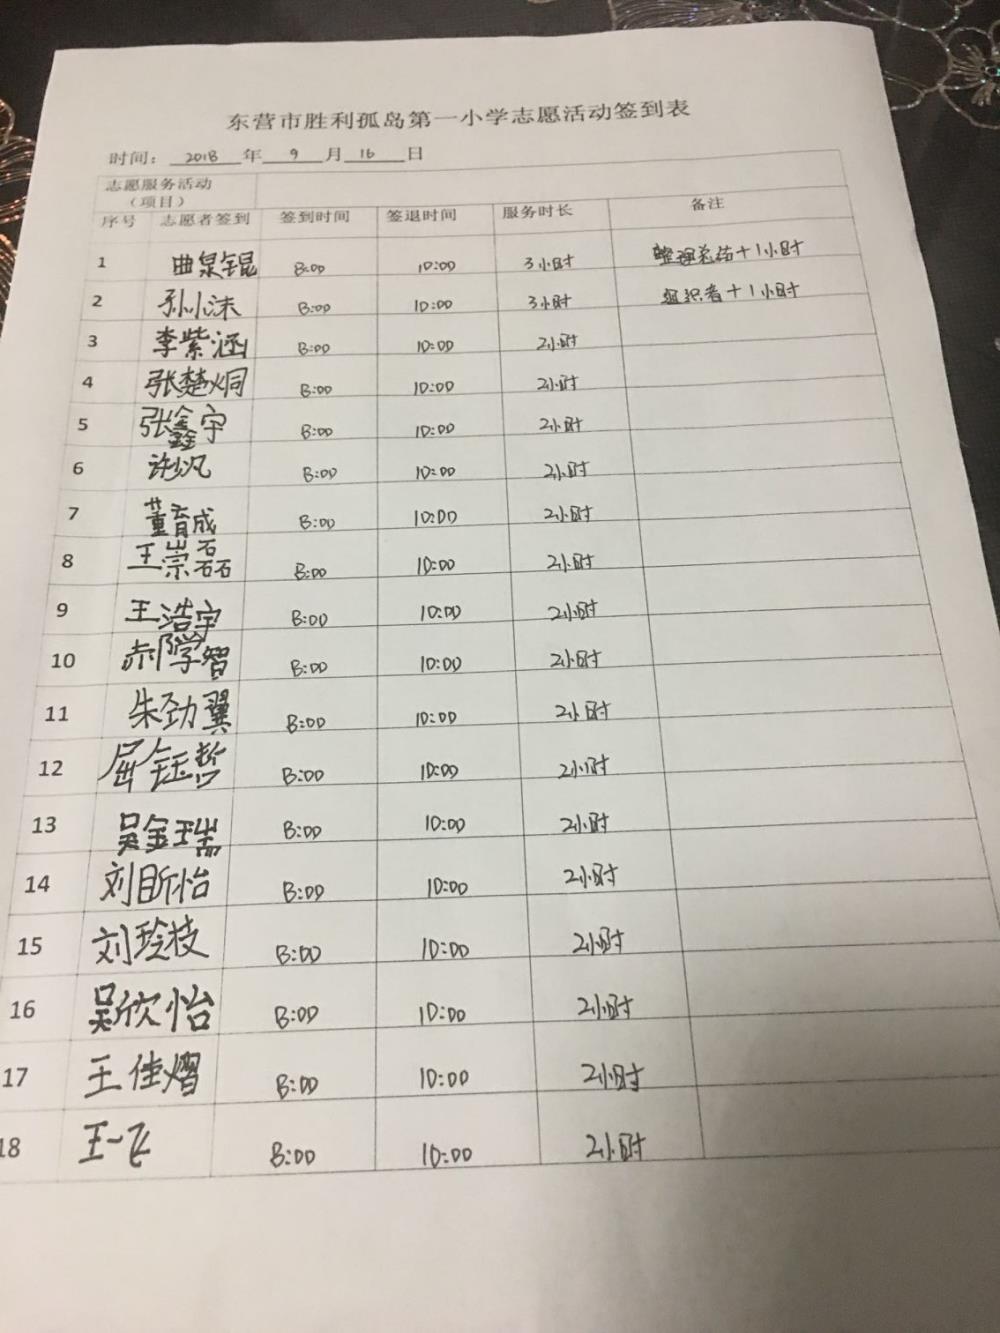 东营市胜利孤岛第一小学志愿活动签到表
时间: 2018 年 9 月 16 日
志愿服务活动
(项目)
序号 志愿者签到 签到时间 签退时间 服务时长 备注
1 曲泉锟 8:00 10:00 3小时 整理总结+1小时
2 孙小沫 8:00 10:00 3小时 组织者+1小时
3 李紫涵 8:00 10:00 2小时
4 张楚炯 8:00 10:00 2小时
5 张鑫宇 8:00 10:00 2小时
6 许少凡 8:00 10:00 2小时
7 董育成 8:00 10:00 2小时
8 王崇磊 8:00 10:00 2小时
9 王浩宇 8:00 10:00 2小时
10 学智 8:00 10:00 2小时
11 朱劲翼 8:00 10:00 2小时
12 屈钰哲 8:00 10:00 2小时
13 吴金瑞 8:00 10:00 2小时
14 刘昕怡 8:00 10:00 2小时
15 刘玲枝 8:00 10:00 2小时
16 吴欣怡 8:00 10:00 2小时
17 王佳熠 8:00 10:00 2小时
18 王一飞 8:00 10:00 2小时